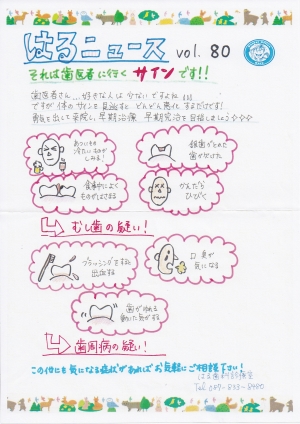 はるニュース vol. 80
それは歯医者に行くサインです!!
歯医者さん...好きな人は少ないですよね
ですが体のサインを見逃すとどんどん悪化するだけです!
勇気を出して来院し、早期治療 早期完治を目指しましょう
あついもの
冷たいものが
しみる!
銀歯がとれた
歯が欠けた
食事中によく
ものがはさまる
かんだら
ひびく
むし歯の疑い!
ブラッシングをすると
出血する
口臭が
気になる
歯がゆれる
動いた気がする
歯周病の疑い!
この他にも気になる症状があればお気軽にご相談下さい!
はる歯科診療室
Tel. 087-833-8480